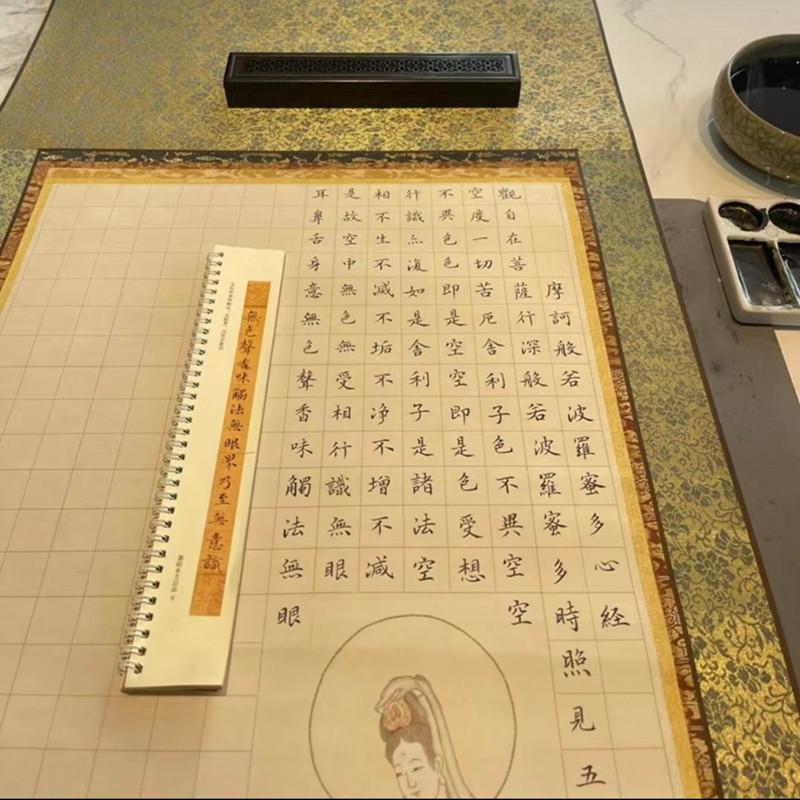 摩訶般若波羅蜜多心経
觀自在菩薩行深般若波羅蜜多時照見五
空度一切苦厄舍利子色不異空空
不異色色即是空空即是色受想
行識亦復如是舍利子是諸法空
相不生不滅不垢不净不增不減
是故空中無色無受相行識無眼
耳鼻舌身意無色聲香味觸法無眼
無色聲香味觸法無眼界乃至無意識